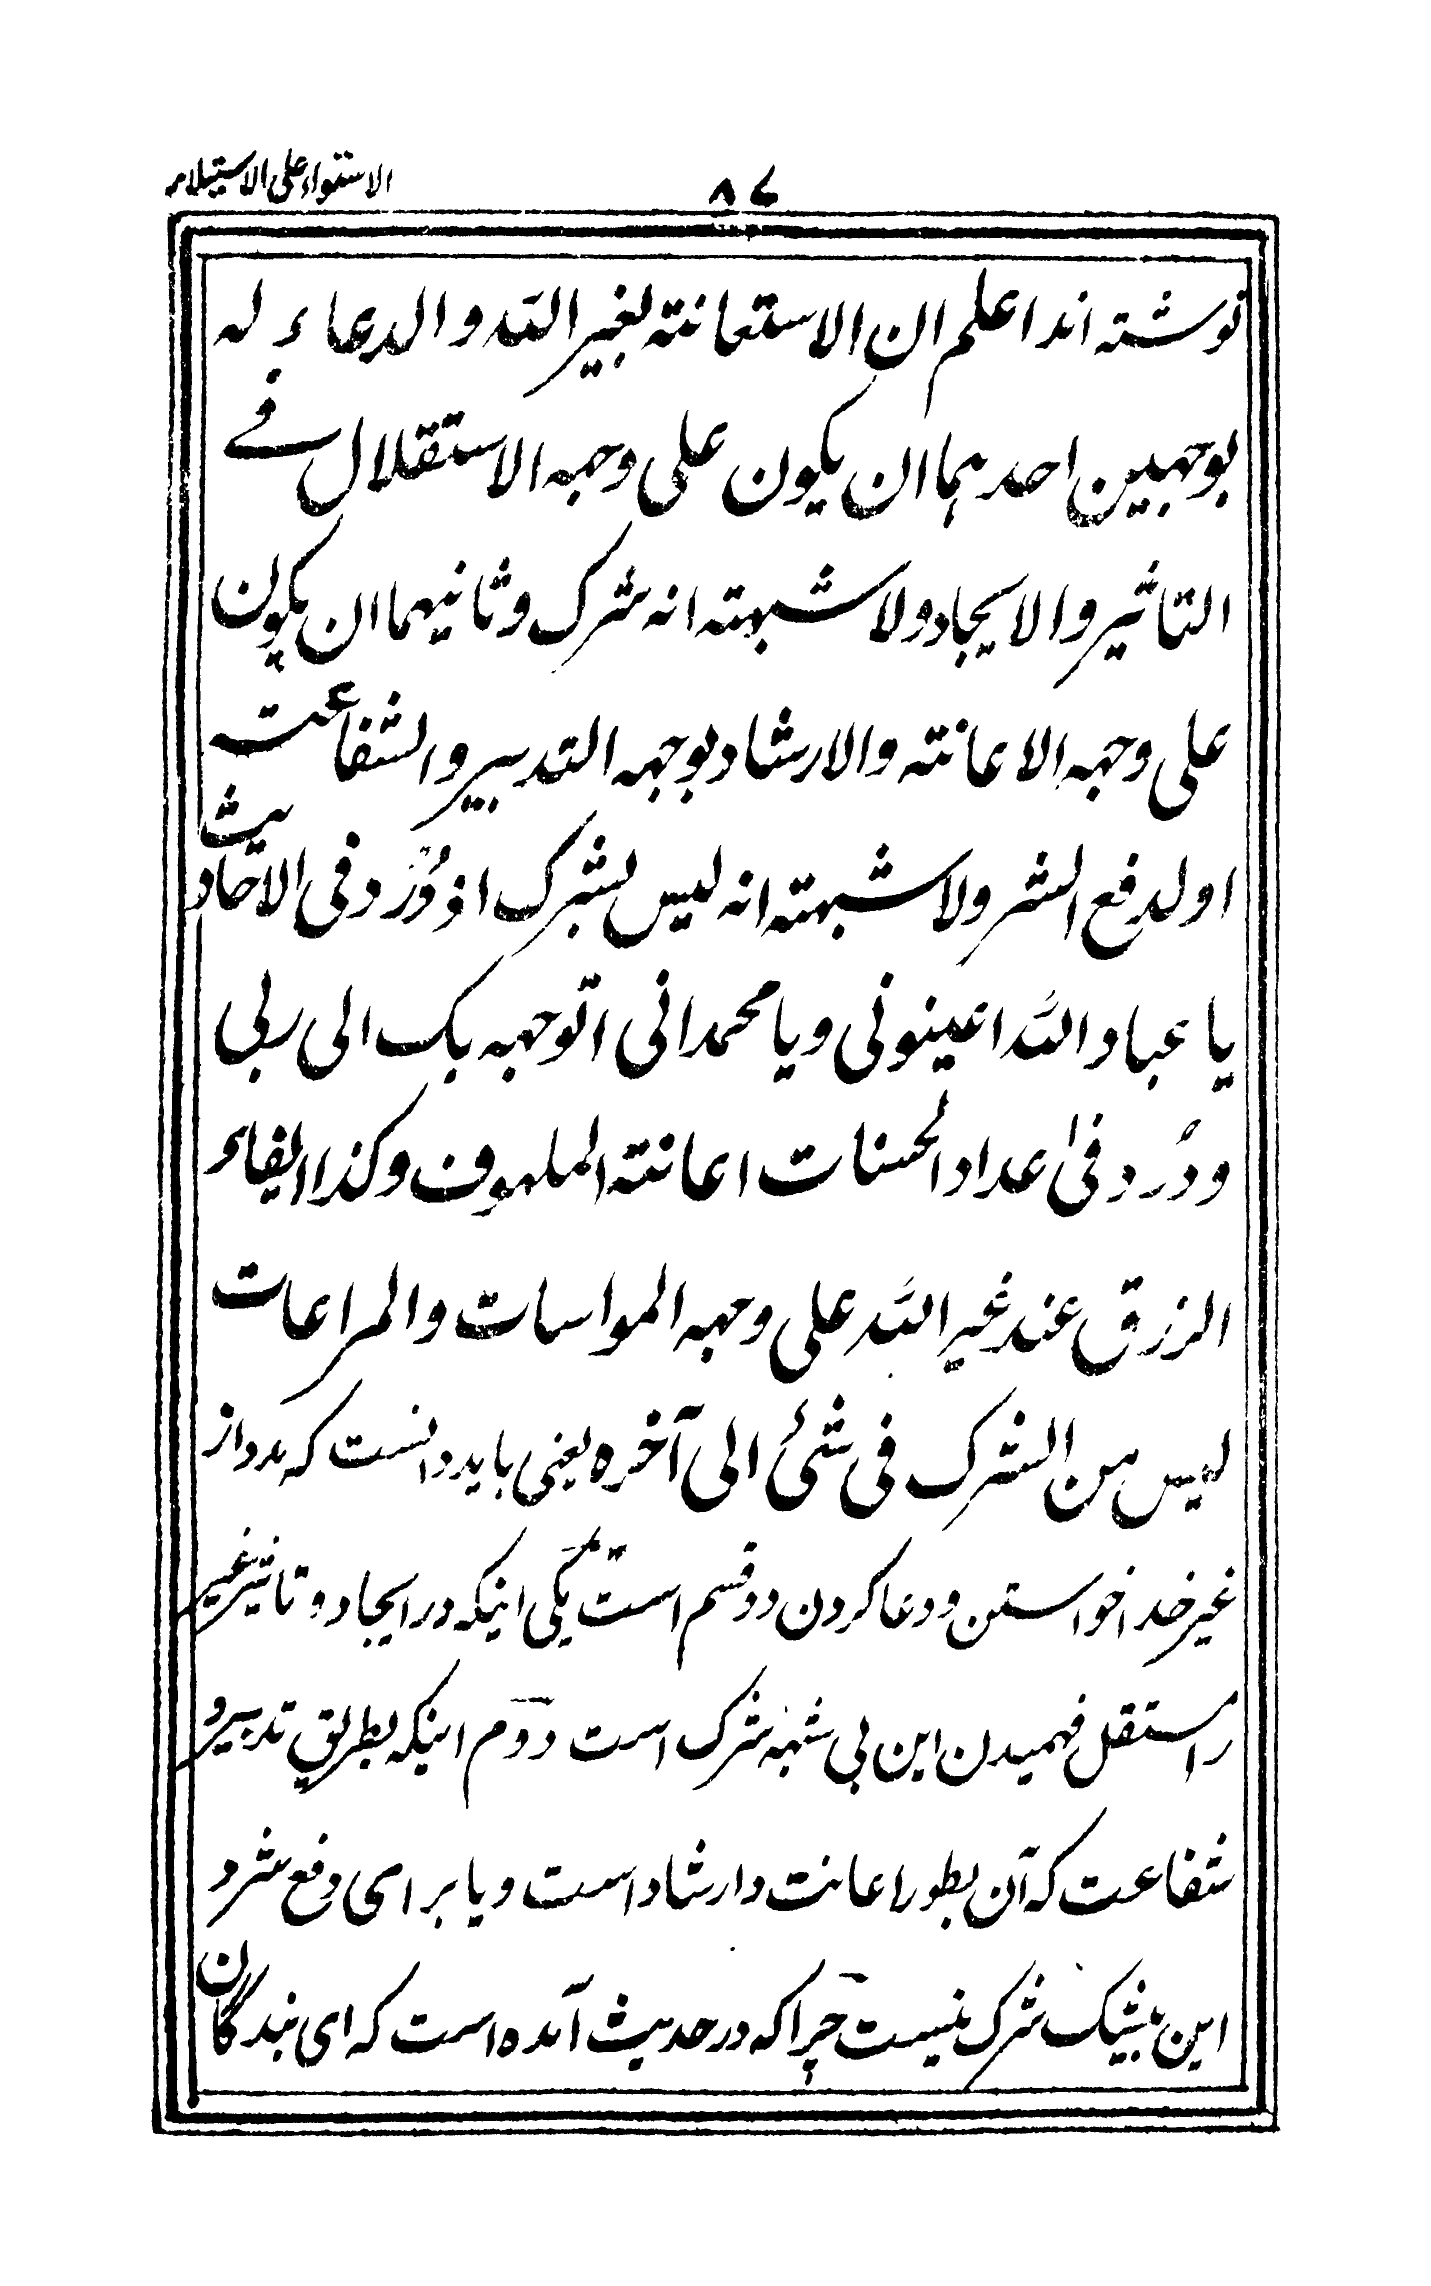 ۸۷
الاستواء علی الاستیلاء
نوشته اند اعلم ان الاستعانته بغیر الله والدعاء له
بوجهین احدهما ان یکون علی وجهه الاستقلال فے
التاثیر والایجاد ولا شبهته انه شرک وثانیهما ان یکون
علی وجهه الاعانته والارشاد بوجهه التدبیر والشفاعت
اولدفع الشر ولا شبهته انه لیس بشرک اذ وُرَد فی الاحادیث
یا عباد الله اعینونی ویا محمد انی اتوجهه بک الی ربی
ووُرد فی اعداد الحسنات اعانته الملهوف وکذا ایفاء
الرزق عند غیر الله علی وجهه المواسات والمراعات
لیس من الشرک فی شئ الی آخره یعنی باید دانست که مدد از
غیر خدا خواستن ودعا کردن دو قسم است یکی اینکه در ایجاد و تاثیر غیر
را مستقل فهمیدن این بی شبهه شرک است دوم اینکه بطریق تدبیر و
شفاعت که آن بطور اعانت وارشاد است ویا برامی دفع شر و
این بیشک شرک نیست چرا که در حدیث آمده است که ای بندگان